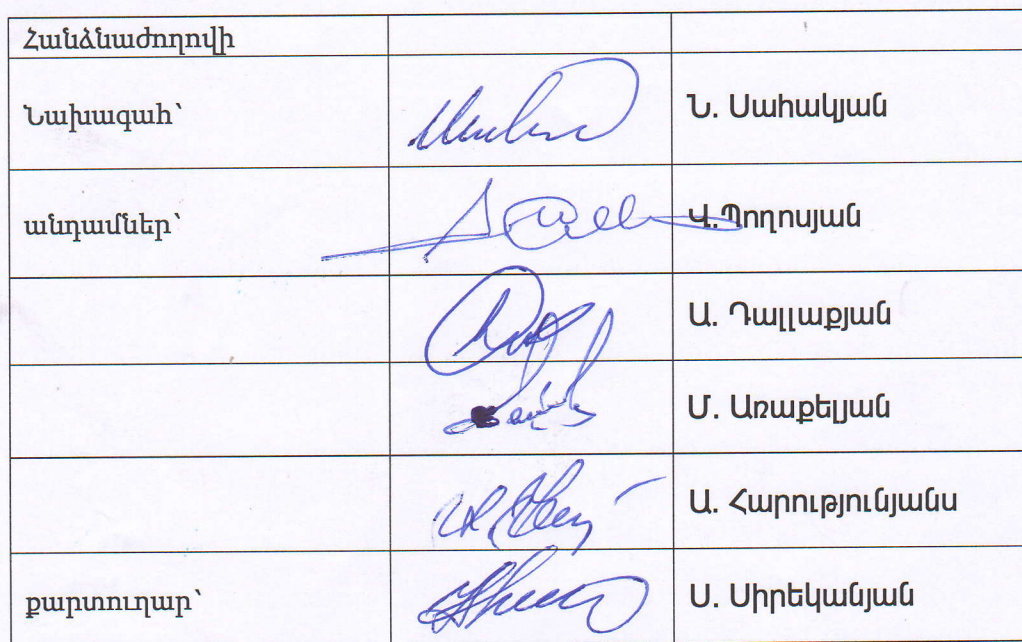 Հանձնաժողովի
Նախագահ՝ Ն. Սահակյան
անդամներ՝ Վ.Պողոսյան
Ա. Դալլաքյան
Մ. Առաքելյան
Ա. Հարությունյանս
քարտուղար՝ Ս. Սիրեկանյան